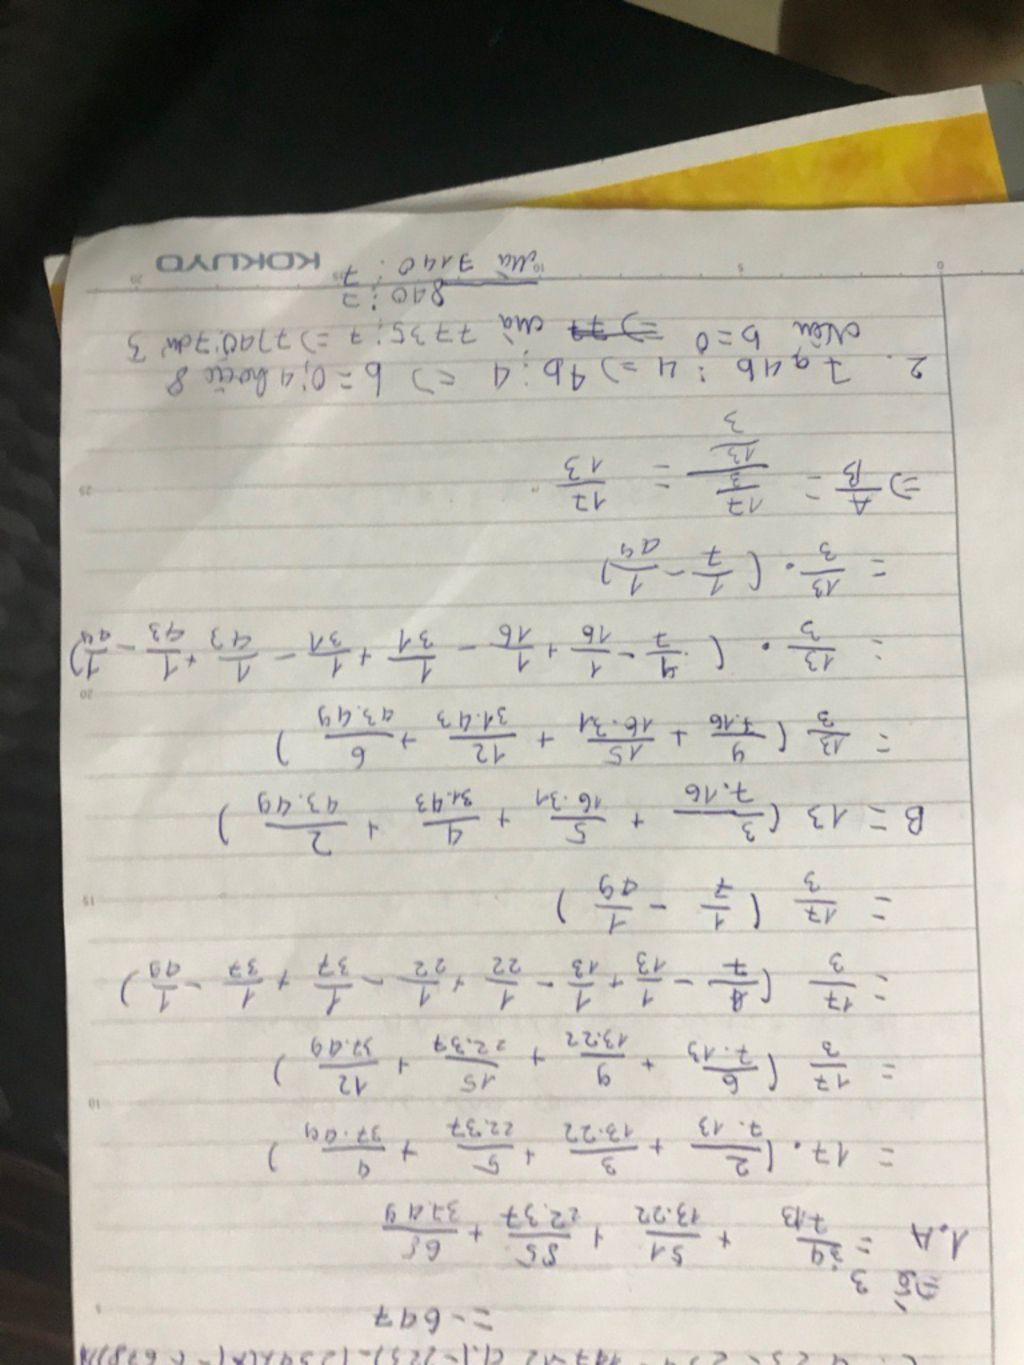 = -647
Bài 3
1. A = 34/7.13 + 51/13.22 + 85/22.37 + 68/37.49
= 17. ( 2/7.13 + 3/13.22 + 5/22.37 + 4/37.49 )
= 17/3 ( 6/7.13 + 9/13.22 + 15/22.37 + 12/37.49 )
= 17/3 ( 1/7 - 1/13 + 1/13 - 1/22 + 1/22 - 1/37 + 1/37 - 1/49 )
= 17/3 ( 1/7 - 1/49 )
B = 13 ( 3/7.16 + 5/16.31 + 4/31.43 + 2/43.49 )
= 13/3 ( 9/7.16 + 15/16.31 + 12/31.43 + 6/43.49 )
= 13/3 . ( 1/7 - 1/16 + 1/16 - 1/31 + 1/31 - 1/43 + 1/43 - 1/49 )
= 13/3 . ( 1/7 - 1/49 )
=> A/B = 17/3 / 13/3 = 17/13 .
2. 7a4b ⋮ 4 => 4b ⋮ 4 => b = 0; 4 hoặc 8
Nếu b = 0 => 77 mà 7735 ⋮ 7 => 7740 : 7 dư 3
840 ⋮ 7
Mà 7140 ⋮ 7
KOKUYO
5
10
15
20
25
0
5
10
20